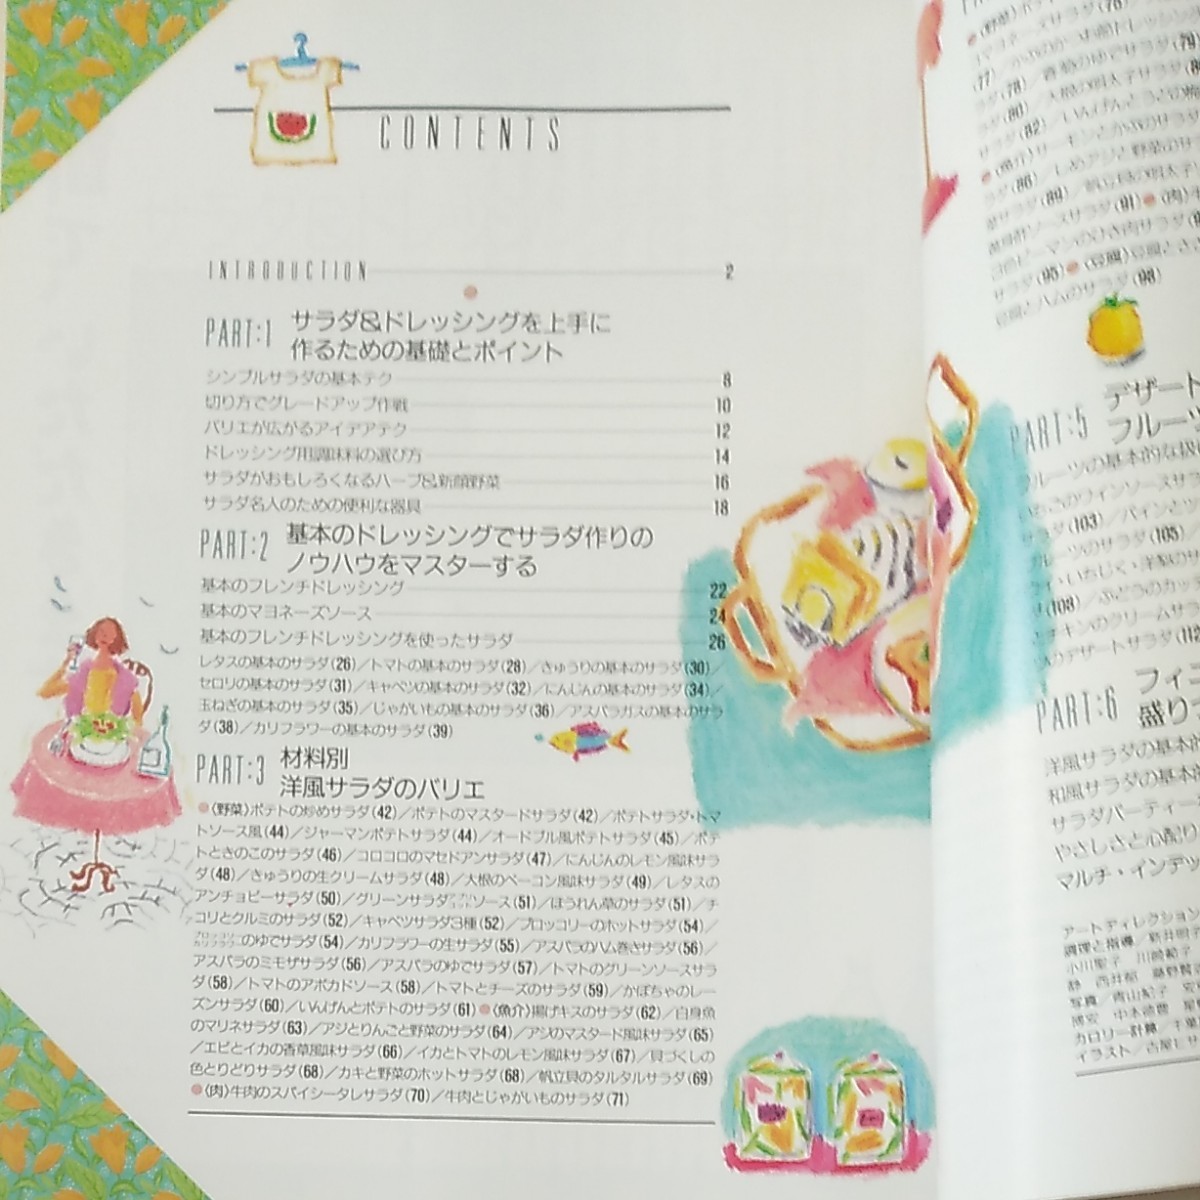 CONTENTS
INTRODUCTION 2
PART:1 サラダ&ドレッシングを上手に
作るための基礎とポイント
シンプルサラダの基本テク 8
切り方でグレードアップ作戦 10
バリエが広がるアイデアテク 12
ドレッシング用調味料の選び方 14
サラダがおもしろくなるハーブ&新顔野菜 16
サラダ名人のための便利な器具 18
PART:2 基本のドレッシングでサラダ作りの
ノウハウをマスターする
基本のフレンチドレッシング 22
基本のマヨネーズソース 24
基本のフレンチドレッシングを使ったサラダ 26
レタスの基本のサラダ(26)/トマトの基本のサラダ(28)/きゅうりの基本のサラダ(30)/
セロリの基本のサラダ(31)/キャベツの基本のサラダ(32)/にんじんの基本のサラダ(34)/
玉ねぎの基本のサラダ(35)/じゃがいもの基本のサラダ(36)/アスパラガスの基本のサラ
ダ(38)/カリフラワーの基本のサラダ(39)
PART:3 材料別
洋風サラダのバリエ
●〈野菜〉ポテトの炒めサラダ(42)/ポテトのマスタードサラダ(42)/ポテトサラダ・トマ
トソース風(44)/ジャーマンポテトサラダ(44)/オードブル風ポテトサラダ(45)/ポテ
トときのこのサラダ(46)/コロコロのマセドアンサラダ(47)/にんじんのレモン風味サラ
ダ(48)/きゅうりの生クリームサラダ(48)/大根のベーコン風味サラダ(49)/レタスの
アンチョビーサラダ(50)/グリーンサラダ ソース(51)/ほうれん草のサラダ(51)/チ
コリとクルミのサラダ(52)/キャベツサラダ3種(52)/ブロッコリーのホットサラダ(54)/
ブロッコリー カリフラワーのゆでサラダ(54)/カリフラワーの生サラダ(55)/アスパラのハム巻きサラダ(56)/
アスパラのミモザサラダ(56)/アスパラのゆでサラダ(57)/トマトのグリーンソースサラ
ダ(58)/トマトのアボカドソース(58)/トマトとチーズのサラダ(59)/かぼちゃのレー
ズンサラダ(60)/いんげんとポテトのサラダ(61)●〈魚介〉揚げキスのサラダ(62)/白身魚
のマリネサラダ(63)/アジとりんごと野菜のサラダ(64)/アジのマスタード風味サラダ(65)
/エビとイカの香草風味サラダ(66)/イカとトマトのレモン風味サラダ(67)/貝づくしの
色とりどりサラダ(68)/カキと野菜のホットサラダ(68)/帆立貝のタルタルサラダ(69)
●〈肉〉牛肉のスパイシータレサラダ(70)/牛肉とじゃがいものサラダ(71)
マヨネーズサラダ(76)
サラダ(95)●〈豆腐〉豆腐とささ
豆腐とハムのサラダ(98)
PART:5 デザート
フルーツ
フルーツの基本的な扱い
いちごのワインソースサラ
サラダ(103)/パインと
フルーツのサラダ(105)
イ・いちじく・洋梨のサ
(108)/ぶどうのカッ
チキンのクリームサラ
のデザートサラダ(112
PART:6 フィニ
盛りつ
洋風サラダの基本的
和風サラダの基本的
サラダパーティー
やさしさと心配り
マルチ・インデッ
アートディレクション
調理と指導/新井明子
小川聖子 川崎範子
静 西井郁 藤野賀
写真 青山紀子
カロリー計算/千葉
イラスト/古屋ヒサ